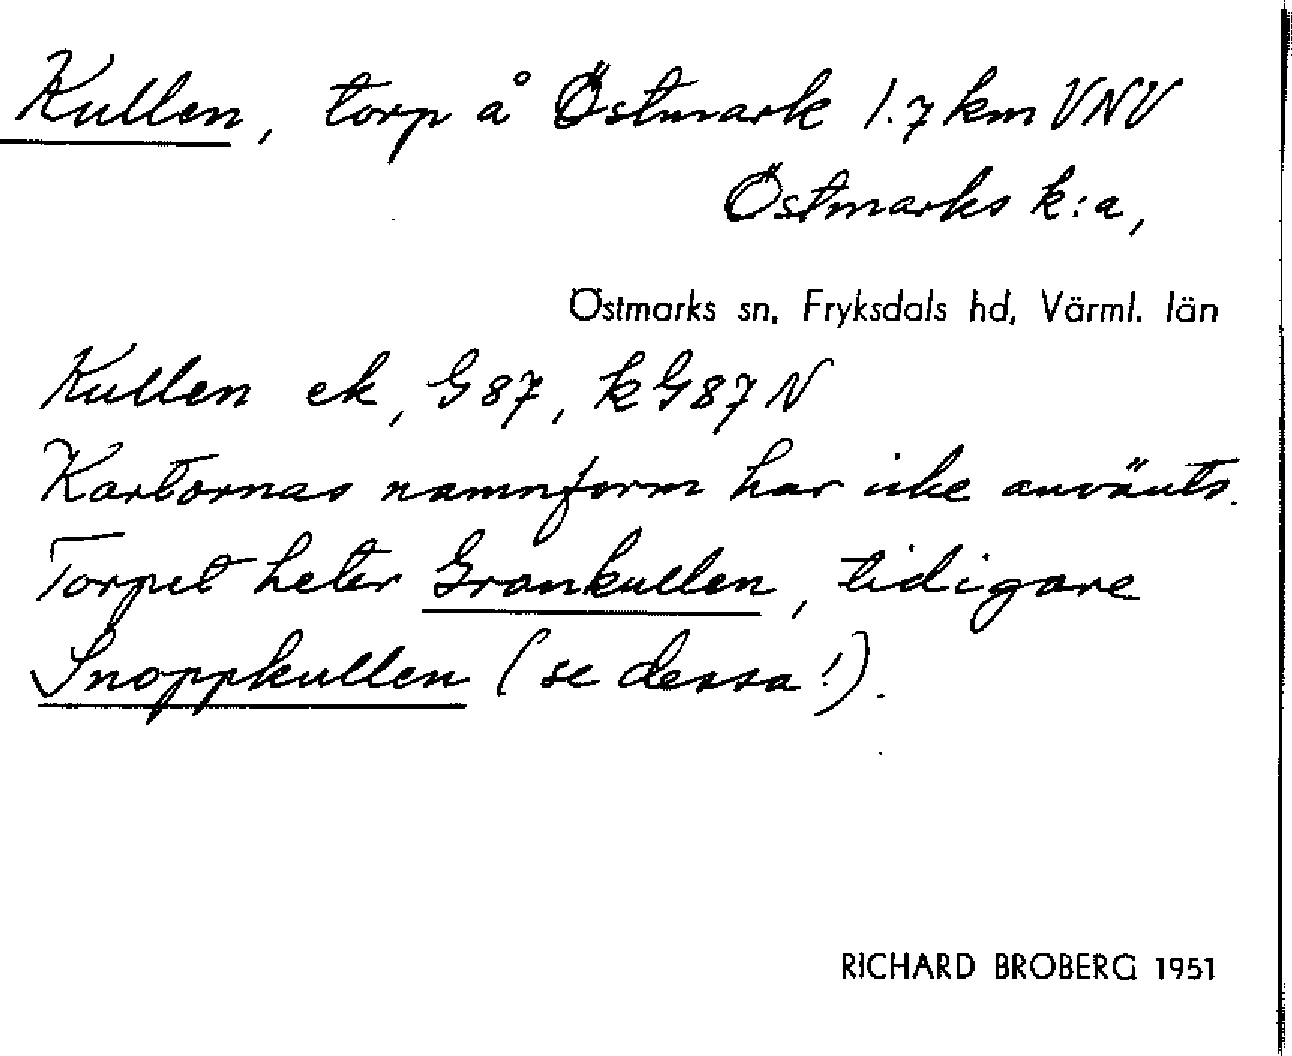 Kullen, torp å Östmark 1.7 km VNV
Östmarks k:a,
Östmarks sn, Fryksdals hd, Värml. län
Kullen ek, G 87, kG87N
Kartornas namnform har icke använts.
Torpet heter Grankullen, tidigare
Snoppkullen (se dessa!).
RICHARD BROBERG 1951